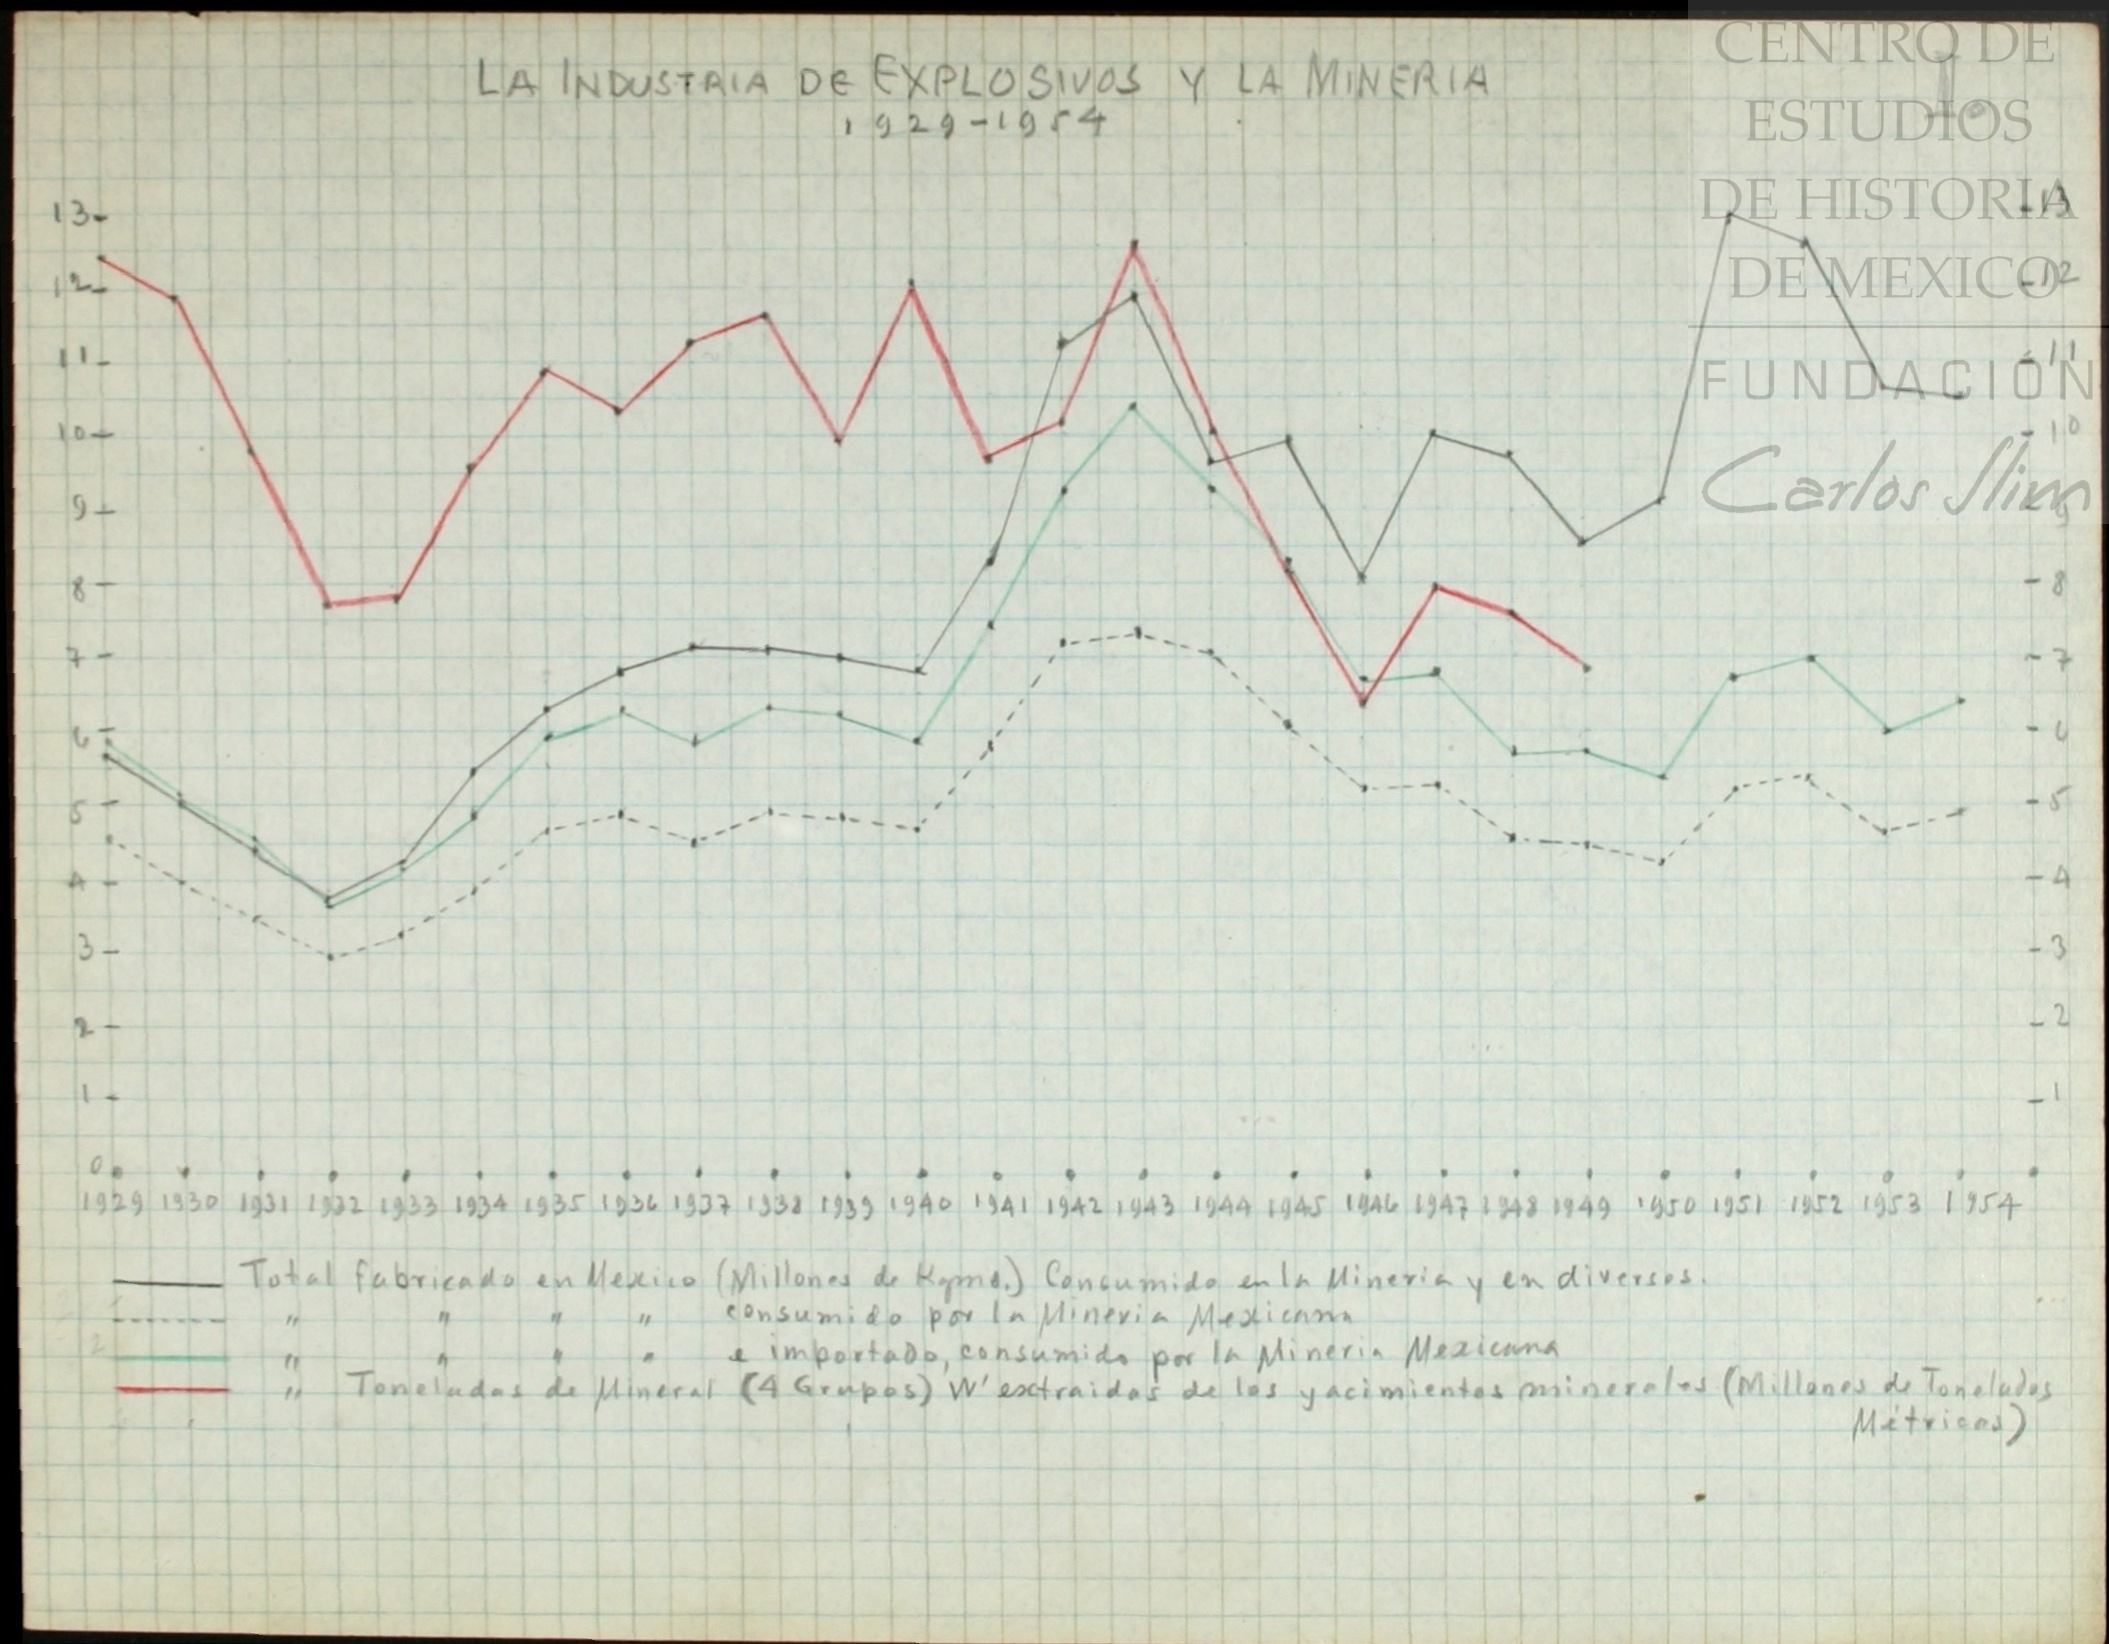 LA INDUSTRIA DE EXPLOSIVOS Y LA MINERIA
1929-1954
CENTRO DE
ESTUDIOS
DE HISTORIA
DE MEXICO
FUNDACIÓN
Carlos Slim
13 13
12 12
11 11
10 10
9 9
8 8
7 7
6 6
5 5
4 4
3 3
2 2
1 1
0
1929 1930 1931 1932 1933 1934 1935 1936 1937 1938 1939 1940 1941 1942 1943 1944 1945 1946 1947 1948 1949 1950 1951 1952 1953 1954
Total fabricado en Mexico (Millones de Kgmo.) Consumido en la Mineria y en diversos.
" " " " consumido por la Mineria Mexicana
" " " " e importado, consumido por la Mineria Mexicana
" Toneladas de Mineral (4 Grupos) extraidas de los yacimientos minerales (Millones de Toneladas
Métricas)